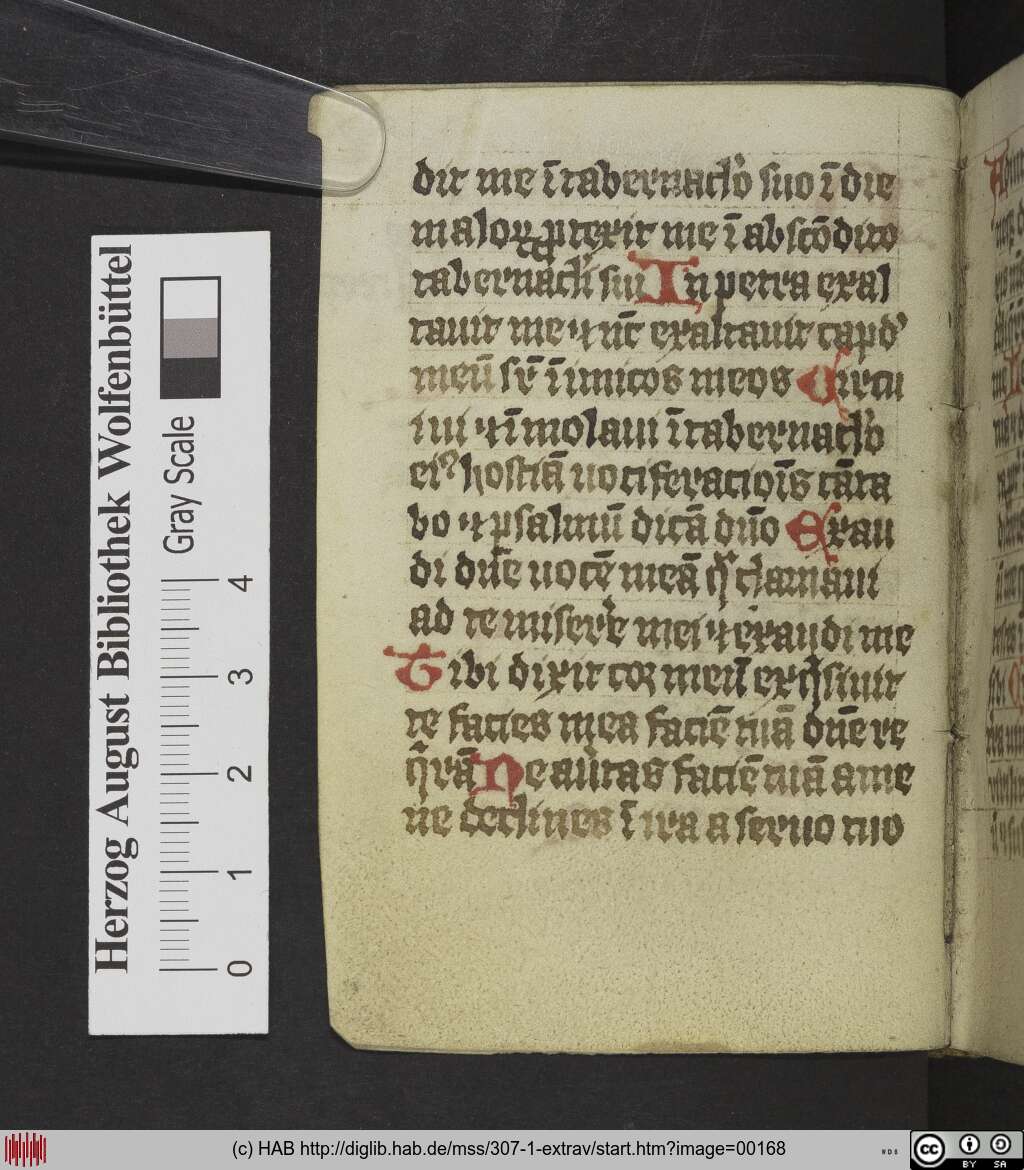 dit me ī tabernacl'o suo ī die
maloꝝ ꝓtexit me ī abscōdito
tabernacl'i sui In petra exal
tauit me ⁊ nūc exaltauit capđ
meū sr̄ īimicos meos Circu
iui ⁊ īmolaui ī tabernacl'o
eiꝰ hostiā uociferacioīs cāta
bo ⁊ psalmū dicā dn̄o Exau
di dn̄e uocē meā q̄ clamaui
ad te miser'e mei ⁊ exaudi me
Tibi dixit cor meū exq̄siuit
te facies mea faciē tuā dn̄e re
q̄rā Ne au'tas faciē tuā a me
ne declines ī ira a seruo tuo
Herzog August Bibliothek Wolfenbüttel
Gray Scale
0 1 2 3 4
(c) HAB http://diglib.hab.de/mss/307-1-extrav/start.htm?image=00168
cc BY SA